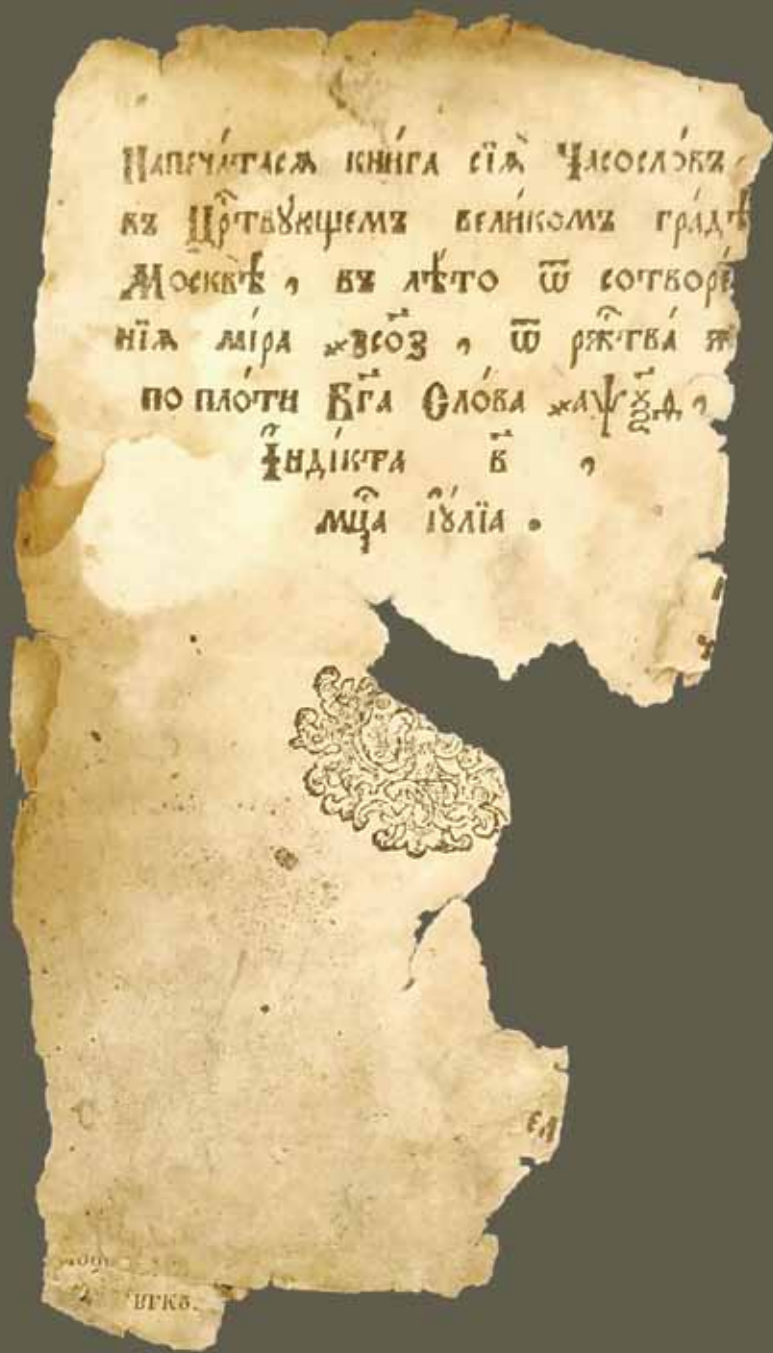 Напеча́тасѧ кни́га сїѧ̀ Часосло́въ ,
въ Цр҇твꙋющемъ вели́комъ гра́дѣ
Москвѣ̀ , въ лѣ́то ѿ сотворе́
нїѧ мі́ра ҂зсо҃з , ѿ рж҇тва́ ж
по пло́ти Бг҃а Сло́ва ҂аѱѯ҃ѳ ,
Їндї́кта в҃ ,
мц҇а і҆ꙋ́лїа .
ел